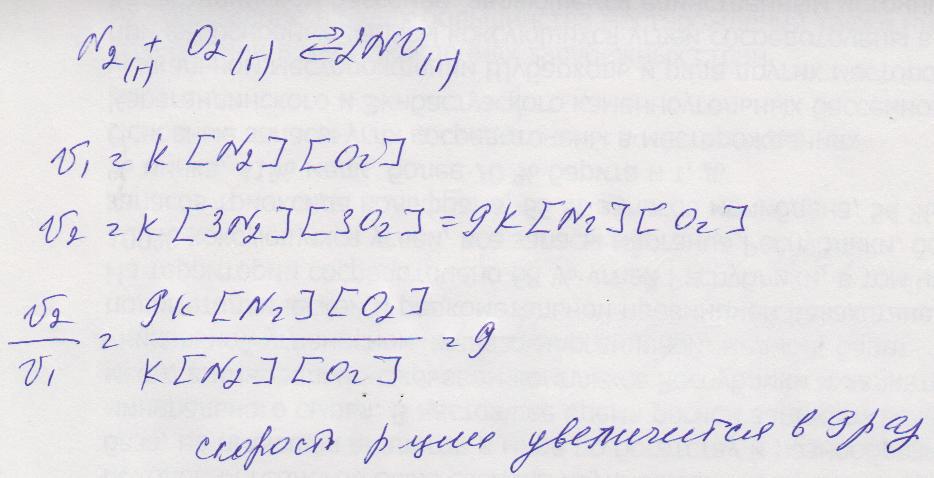 N2(г) + O2(г) ⇄ 2NO(г)
v1 = k [N2] [O2]
v2 = k [3N2] [3O2] = 9k [N2] [O2]
v2/v1 = 9k [N2] [O2] / k [N2] [O2] = 9
скорость р-ции увеличится в 9 раз